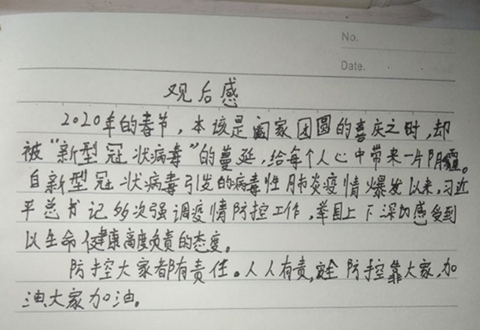 No.
Date.
观后感
2020年的春节,本该是阖家团圆的喜庆之时,却
被“新型冠状病毒”的蔓延,给每个人心中带来一片阴霾。
自新型冠状病毒引发的病毒性肺炎疫情爆发以来,习近
平总书记多次强调疫情防控工作,举国上下深切感受到
以生命健康高度负责的态度。
防控大家都有责任。人人有责,安全防控靠大家,加
油大家加油。